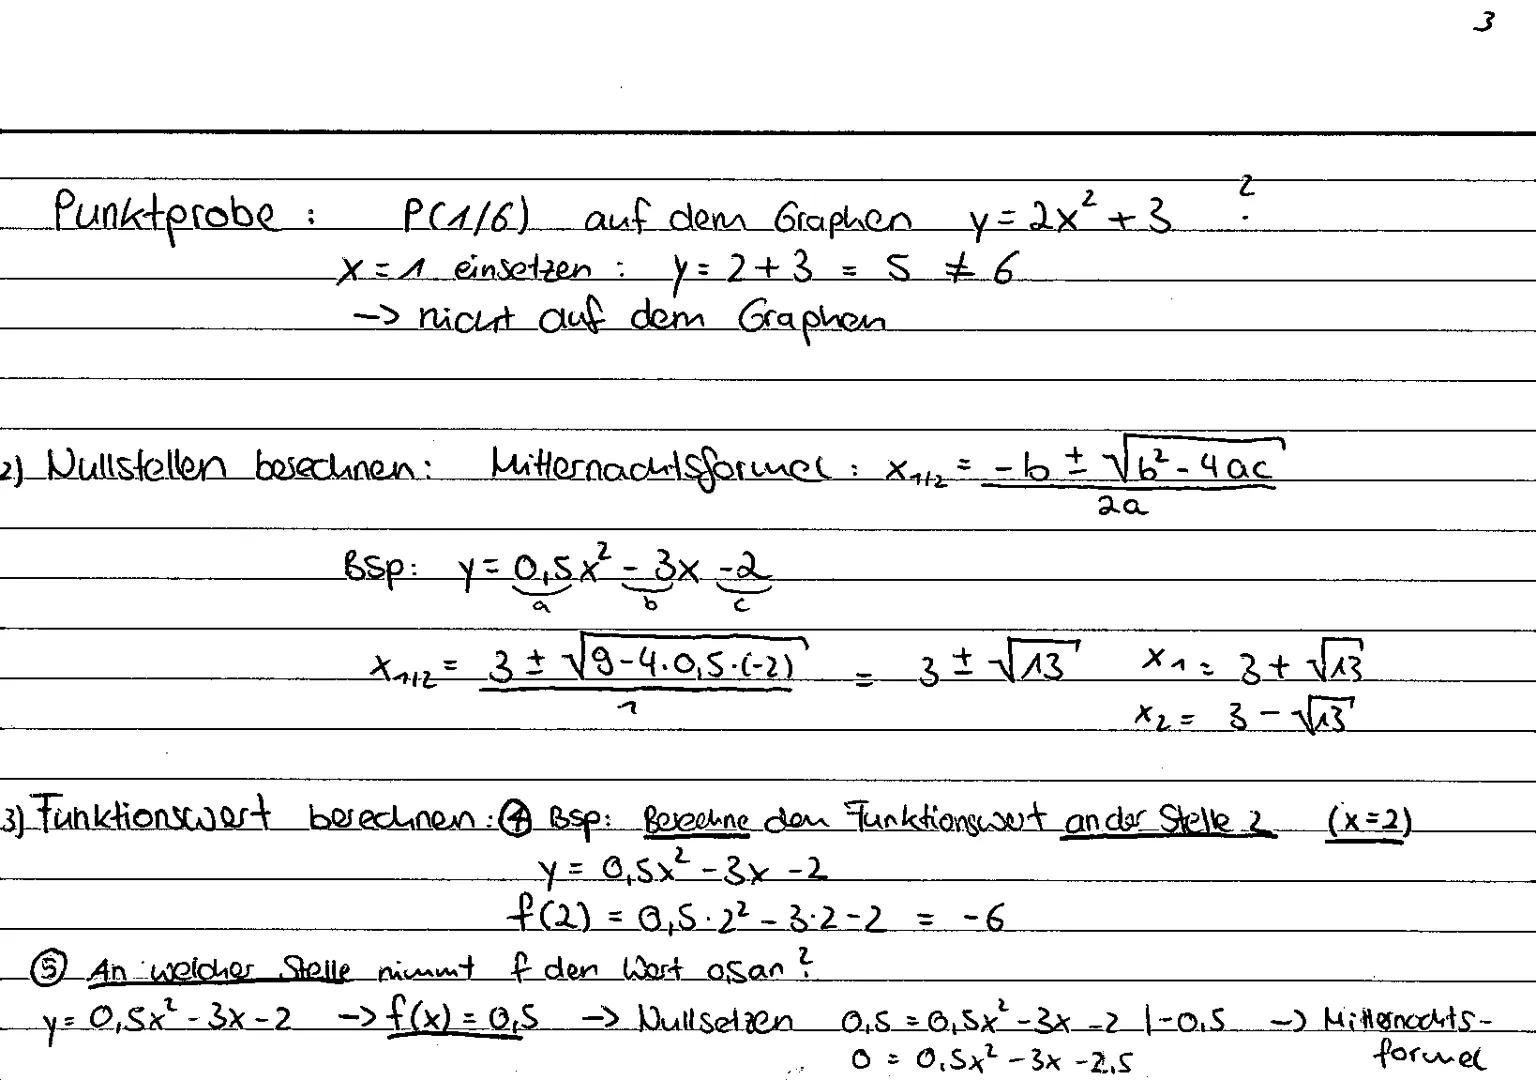 3
Punktprobe : P(1/6) auf dem Graphen y = 2x² + 3 ?
x = 1 einsetzen : y = 2 + 3 = 5 ≠ 6
-> nicht auf dem Graphen
2) Nullstellen berechnen: Mitternachtsformel : x₁/₂ = (-b ± √(b² - 4ac)) / 2a
BSp: y = 0,5x² - 3x - 2
a b c
x₁/₂ = (3 ± √(9 - 4·0,5·(-2))) / 1 = 3 ± √13 x₁ = 3 + √13
x₂ = 3 - √13
3) Funktionswert berechnen: ④ BSp: Berechne den Funktionswert an der Stelle 2 (x=2)
y = 0,5x² - 3x - 2
f(2) = 0,5·2² - 3·2 - 2 = -6
⑤ An welcher Stelle nimmt f den Wert 0,5 an ?
y = 0,5x² - 3x - 2 -> f(x) = 0,5 -> Nullsetzen 0,5 = 0,5x² - 3x - 2 |-0,5 -> Mitternachts-
0 = 0,5x² - 3x - 2,5 formel